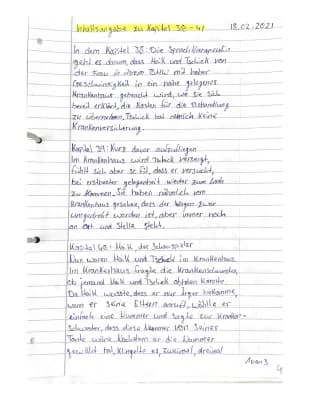 Inhaltsangabe zu Kapitel 38-41
18.02.2021
In dem Kapitel 38: Die Sprachtherapeutin
geht es darum, dass Maik und Tschick von
der Frau in ihrem BMW mit hoher
Geschwindigkeit in ein nahe gelegenes
Krankenhaus gebracht wird, wo sie sich
bereit erklärt, die Kosten für die Behandlung
zu übernehmen, Tschick hat nämlich keine
Krankenversicherung.
Kapitel 39: Kurz davor aufzufliegen
Im Krankenhaus wird Tschick versorgt,
fühlt sich aber so fit, dass er versucht,
bei erstbester gelegenheit wieder zum Lada
zu kommen. Sie haben nämlich vom
Krankenhaus gesehen, dass der Wagen zwar
umgedreht worden ist, aber immer noch
an Ort und Stelle steht.
Kapitel 40: Maik, der Schauspieler
Nun waren Maik und Tschick im Krankenhaus
Im Krankenhaus fragte die Krankenschwester,
ob jemand Maik und Tschick abholen könnte.
Da Maik wusste, dass er nur ärger bekomme,
wenn er seine Eltern anruft, wählte er
einfach eine Nummer und sagte zur Kranken-
schwester, dass diese Nummer von seiner
Tante wäre. Nachdem er die Nummer
gewählt hat, klingelte es, zweimal, dreimal
1 von 3
4